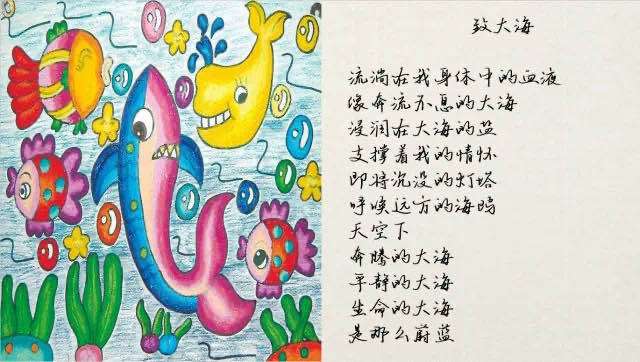 致大海
流淌在我身体中的血液
像奔流不息的大海
浸润在大海的蓝
支撑着我的情怀
即将沉没的灯塔
呼唤远方的海鸥
天空下
奔腾的大海
平静的大海
生命的大海
是那么蔚蓝